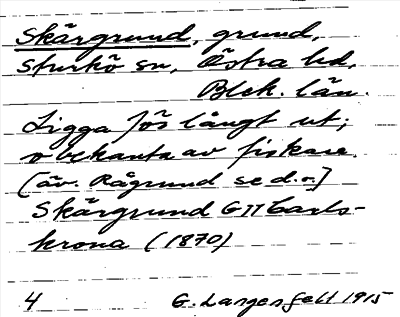 Skärgrund, grund,
Sturkö sn, Östra hd,
Blek. län.
Ligga fös långt ut;
obekanta av fiskare.
[äv. Rågrund se d.o.]
Skärgrund GII Carls-
krona (1870)
4 G. Langenfelt 1915